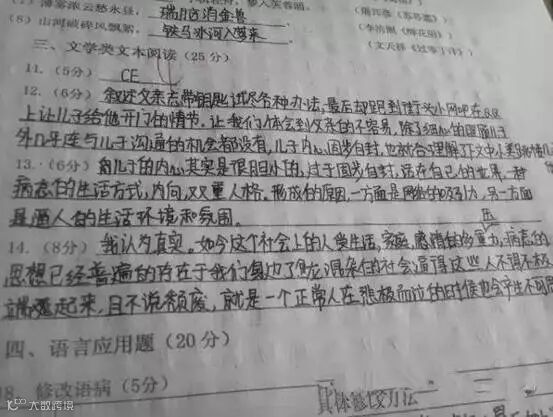 (7) 薄雾浓云愁永昼，瑞脑消金兽 (李清照《醉花阴》)
(8) 山河破碎风飘絮， 铁马冰河入梦来 (文天祥《过零丁洋》)
三、文学类文本阅读(25分)
11.(5分) CE
12.(6分) 叙述父亲忘带钥匙试尽各种办法，最后却跑到 网吧在QQ
上让儿子给他开门的情节。让我们体会到父亲的不容易，除了 儿子
外几乎连与儿子沟通的机会都没有，儿子内心固步自封，也就会理解了下文中小
13.(6分) 儿子的内心其实是很胆小的，过于固步自封，活在自己的世界，一种
病态的生活方式，内向，双重人格。形成的原因，一方面是网络的吸引力，另一方面
是逼人的生活环境和氛围。
14.(8分) 我认为真实。如今这个社会上的人受生活，家庭，感情的多重 病态的
思想已经普遍的存在于我们身边了 混杂的社会逼得这些人不得不极
端 起来，且不说颓废，就是一个正常人在 的时候也会产生不同
四、语言应用题(20分)
18.修改语病(5分) 方法
大数跨境